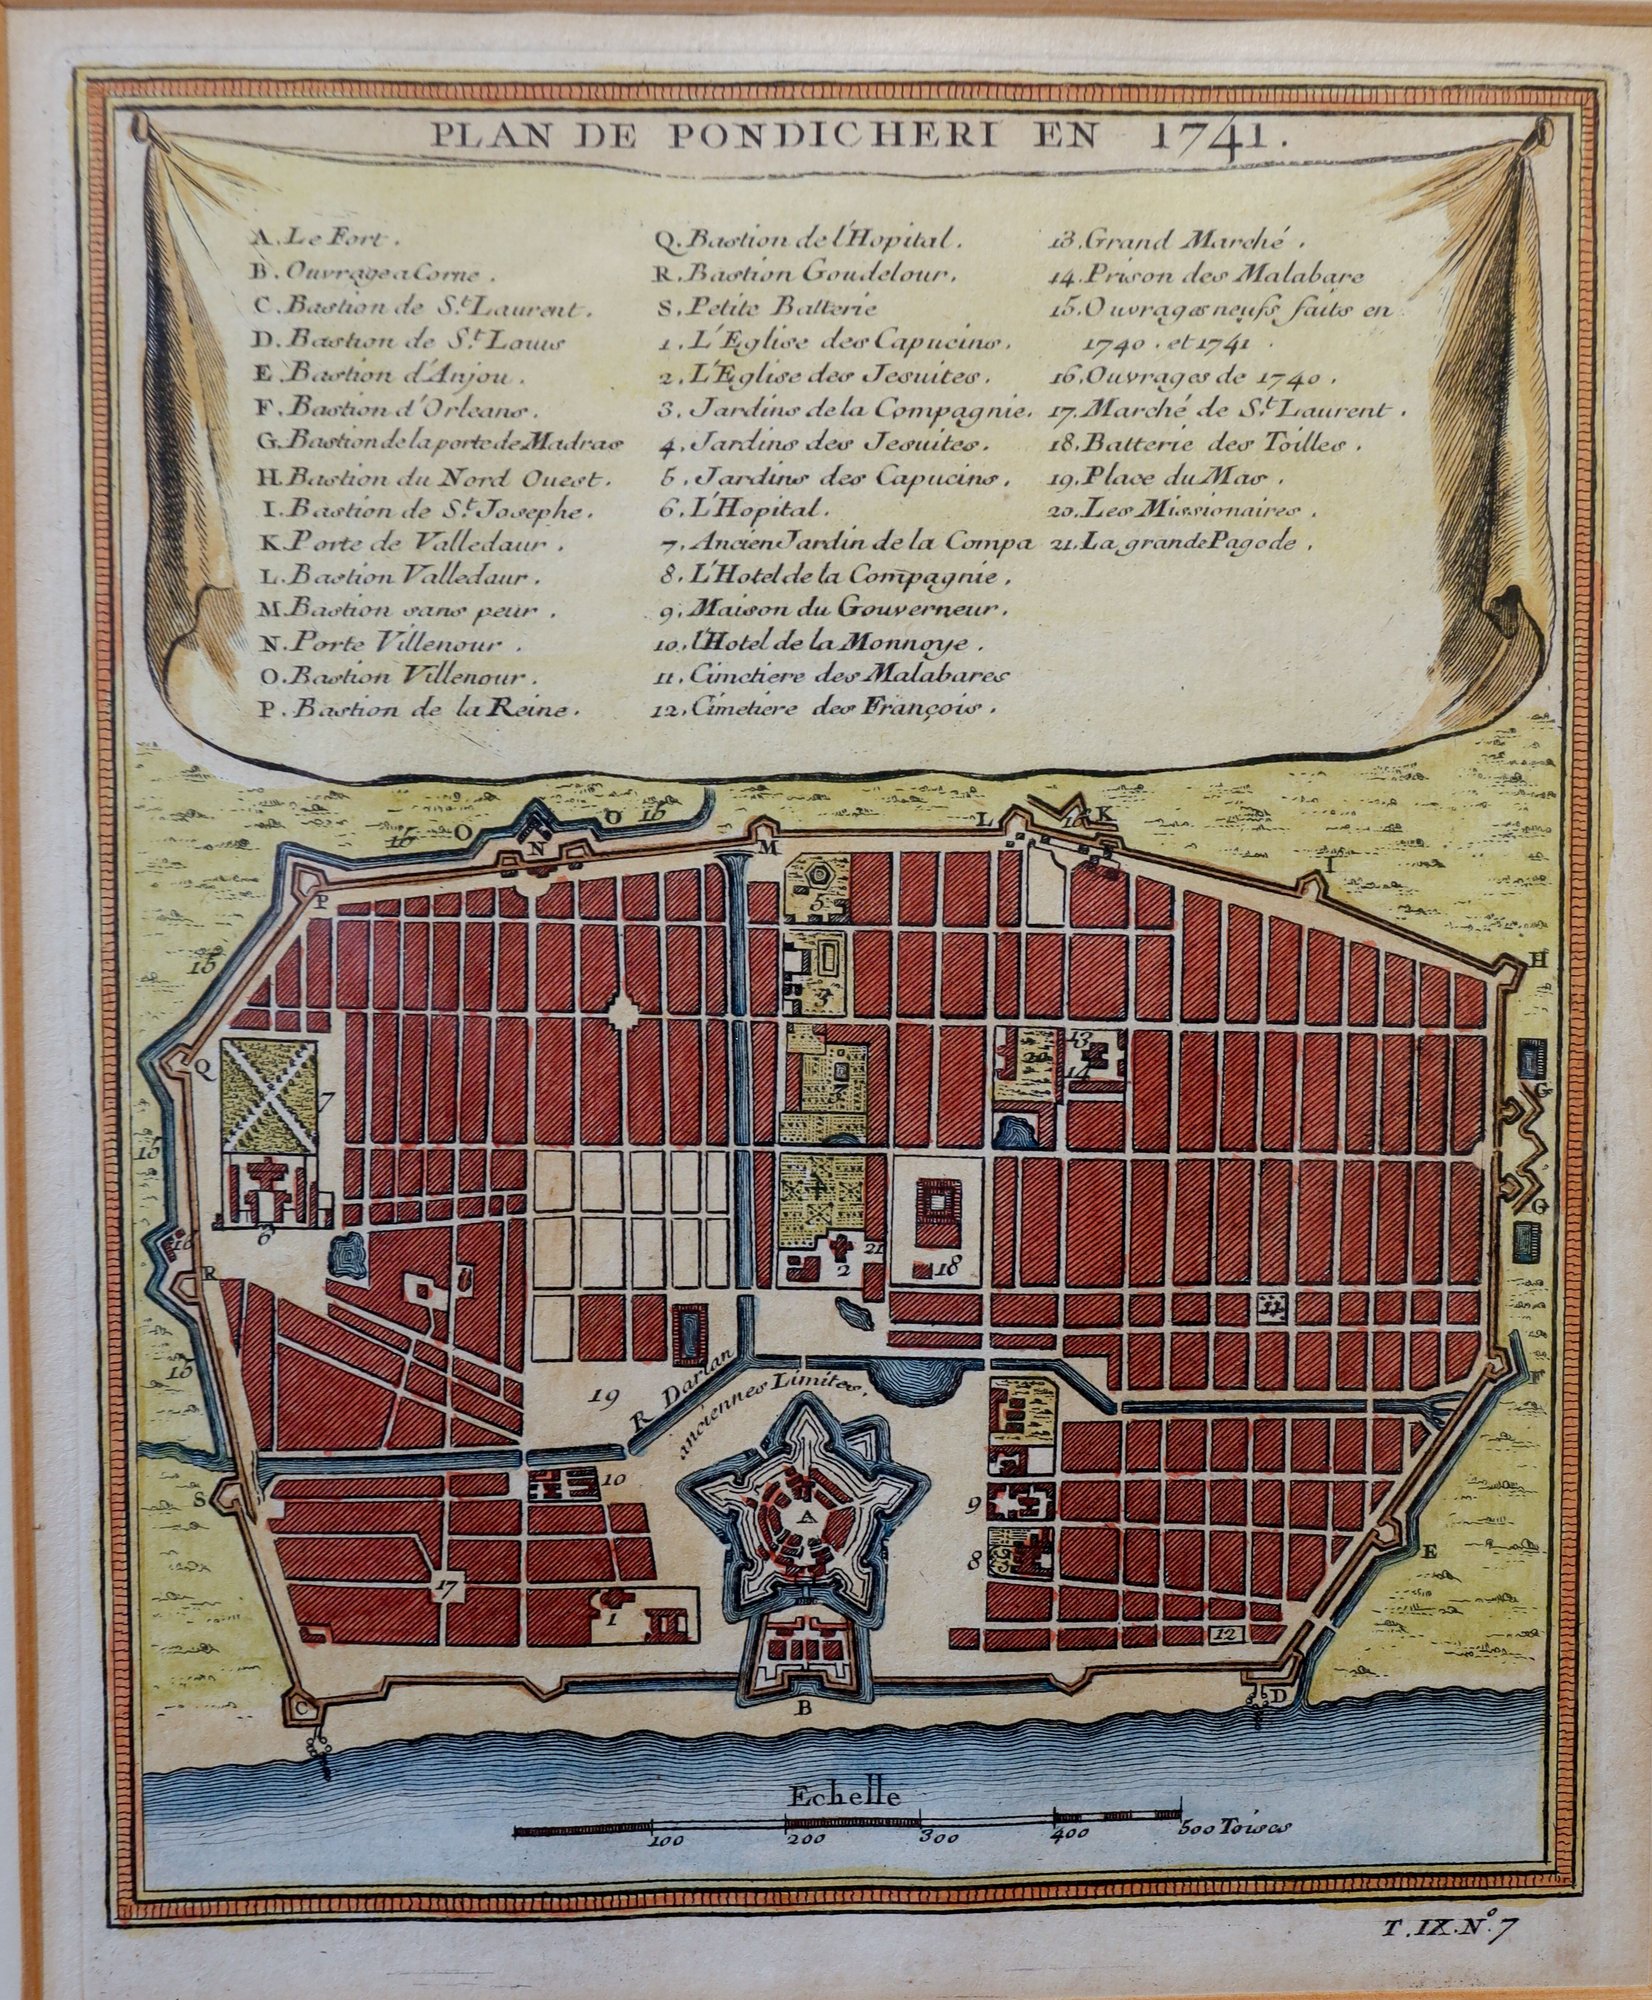 PLAN DE PONDICHERI EN 1741.
A. Le Fort.
B. Ouvrage a Corne.
C. Bastion de S.t Laurent.
D. Bastion de S.t Louis
E. Bastion d'Anjou.
F. Bastion d'Orleans.
G. Bastion de la porte de Madras
H. Bastion du Nord Ouest.
I. Bastion de S.t Josephe.
K. Porte de Valledaur.
L. Bastion Valledaur.
M. Bastion sans peur.
N. Porte Villenour.
O. Bastion Villenour.
P. Bastion de la Reine.
Q. Bastion de l'Hopital.
R. Bastion Goudelour.
S. Petite Batterie
1. L'Eglise des Capucins.
2. L'Eglise des Jesuites.
3. Jardins de la Compagnie.
4. Jardins des Jesuites.
5. Jardins des Capucins.
6. L'Hopital.
7. Ancien Jardin de la Compa
8. L'Hotel de la Compagnie.
9. Maison du Gouverneur.
10. l'Hotel de la Monnoye.
11. Cimetiere des Malabares
12. Cimetiere des François.
13. Grand Marché.
14. Prison des Malabare
15. Ouvrages neufs faits en
1740. et 1741.
16. Ouvrages de 1740.
17. Marché de S.t Laurent.
18. Batterie des Toilles.
19. Place du Mas.
20. Les Missionaires.
21. La grande Pagode.
O
N
O
15
15
M
L
16
K
I
P
5
H
15
Q
3
7
20
13
14
G
15
4
G
6
2
21
18
16
R
11
15
19
R Darian
anciennes Limites.
F
S
10
A
9
8
E
17
1
12
C
B
D
Echelle
100 200 300 400 500 Toises
T. IX. N.o 7